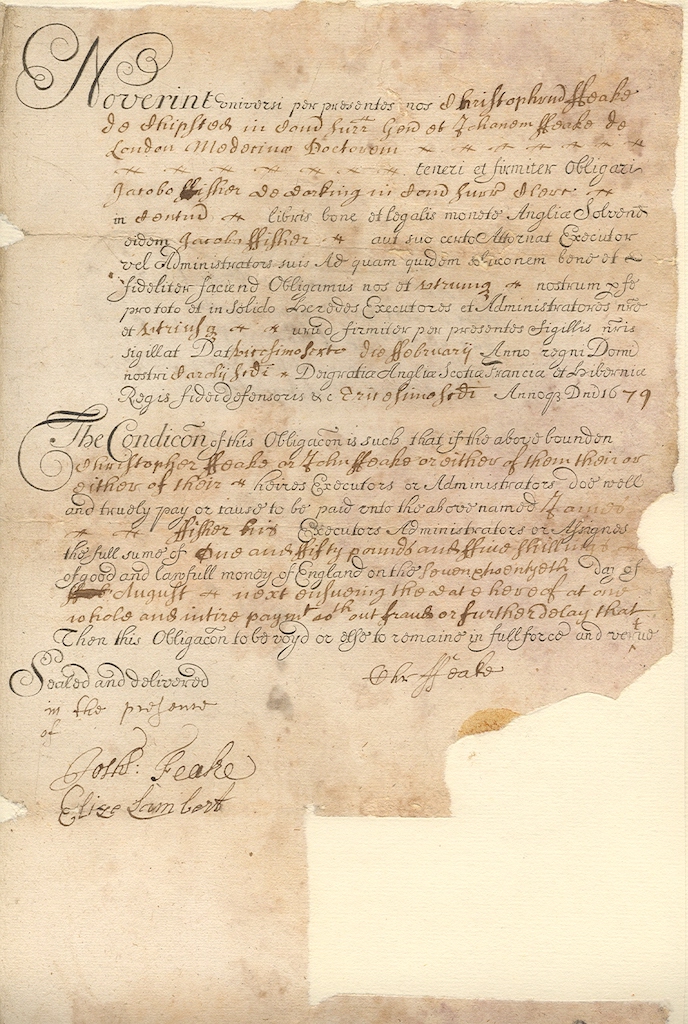 Noverint universi per presentes nos Christopherud ffeake
de Chipsted in Cond Surr Gen et Johanem ffeake de
London Medecinæ Doctorem
teneri et firmiter Obligari
Jacobo ffisher de Dorking in Cond Surr Cler
in Centud libris bone et legalis monete Angliæ Solvend
eidem Jacobo ffisher aut suo certo Attornat Executor
vel Administrators suis Ad quam quidem bene et
fideliter faciend Obligamus nos et utrumq nostrum p se
pro toto et in Solido heredes Executores et Administratores nrõs
et utriusq firmiter per presentes Sigillis nris
sigillat Dat vicesimo Sexto die ffebruarij Anno regni Domi
nostri Caroly Scdi Dei gratia Angliæ Scotiæ Franciæ et Hiberniæ
Regis fidei defensoris &c Tricesimo Scdi Annoq Dni 1679
The Condicõn of this Obligacõn is such that if the above bounden
Christopher ffeake or John ffeake or either of them their or
either of their heires Executors or Administrators doe well
and truely pay or cause to be paid unto the above named James
ffisher his Executors Administrators or Assignes
the full sume of One and fifty pounds and ffive shillings
of good and lawfull money of England on the Seven & twentyeth day of
August next ensueing the date hereof at one
whole and intire paymt without fraud or further delay that
Then this Obligacõn to be voyd or else to remaine in full force and vertue
Sealed and delivered Chr ffeake
in the presence
of
Josth: Feake
Elize Lambert